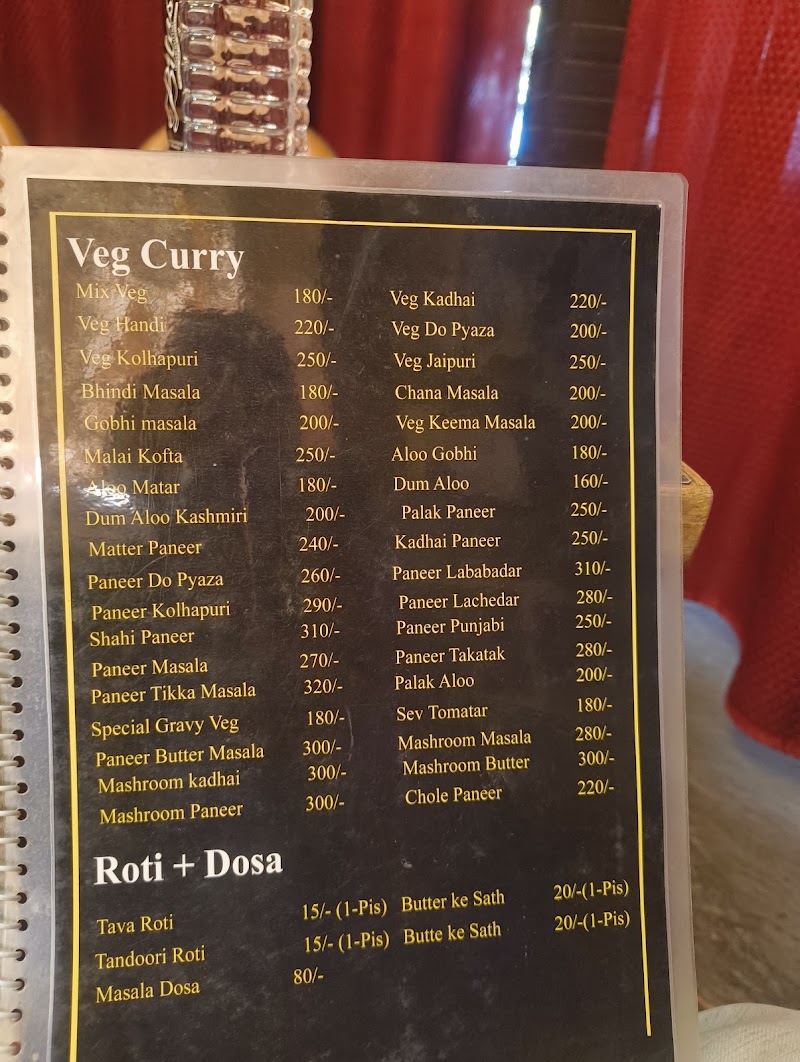 Veg Curry
Mix Veg 180/- Veg Kadhai 220/-
Veg Handi 220/- Veg Do Pyaza 200/-
Veg Kolhapuri 250/- Veg Jaipuri 250/-
Bhindi Masala 180/- Chana Masala 200/-
Gobhi masala 200/- Veg Keema Masala 200/-
Malai Kofta 250/- Aloo Gobhi 180/-
Aloo Matar 180/- Dum Aloo 160/-
Dum Aloo Kashmiri 200/- Palak Paneer 250/-
Matter Paneer 240/- Kadhai Paneer 250/-
Paneer Do Pyaza 260/- Paneer Lababadar 310/-
Paneer Kolhapuri 290/- Paneer Lachedar 280/-
Shahi Paneer 310/- Paneer Punjabi 250/-
Paneer Masala 270/- Paneer Takatak 280/-
Paneer Tikka Masala 320/- Palak Aloo 200/-
Special Gravy Veg 180/- Sev Tomatar 180/-
Paneer Butter Masala 300/- Mashroom Masala 280/-
Mashroom kadhai 300/- Mashroom Butter 300/-
Mashroom Paneer 300/- Chole Paneer 220/-
Roti + Dosa
Tava Roti 15/- (1-Pis) Butter ke Sath 20/-(1-Pis)
Tandoori Roti 15/- (1-Pis) Butte ke Sath 20/-(1-Pis)
Masala Dosa 80/-